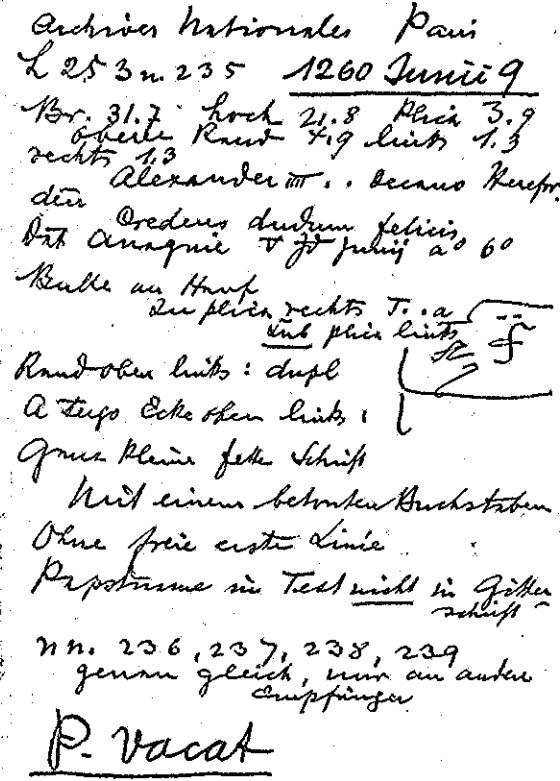 Archives Nationales Paris
L 253 n. 235 1260 Junii 9
Br. 31.7 hoch 21.8 Plica 3.9
oberer Rand 4.9 links 1.3
rechts 1.3
Alexander IIII . . decano Herefor.
den
Credens dudum felicis
Dat Anagnie V Id Junij a° 6°
Bulle an Hanf
Zu plica rechts T. . a
Sub plica links
Rand oben links : dupl
A tergo Ecke oben links :
Ganz kleine fette Schrift
Mit einem betonten Buchstaben
Ohne freie erste Linie
Papstname im Text nicht in Gitter
schrift
nn. 236, 237, 238, 239
genau gleich, nur an andere
Empfänger
P. vacat